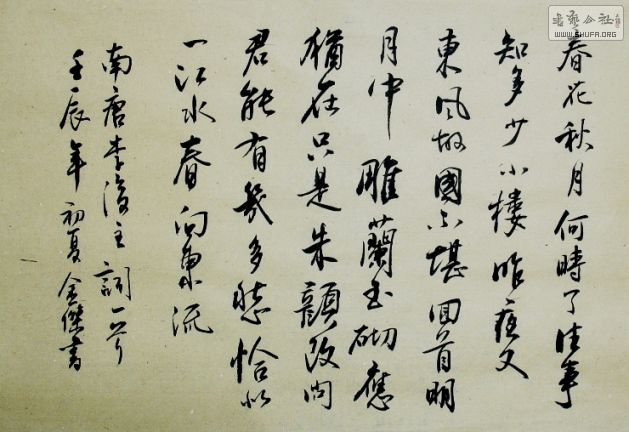 春花秋月何時了往事
知多少小樓昨夜又
東風故國不堪回首明
月中雕蘭玉砌應
猶在只是朱顏改問
君能有幾多愁恰似
一江水春向東流
南唐李後主詞一首
壬辰年初夏金傑書
书艺公社
WWW.SHUFA.ORG